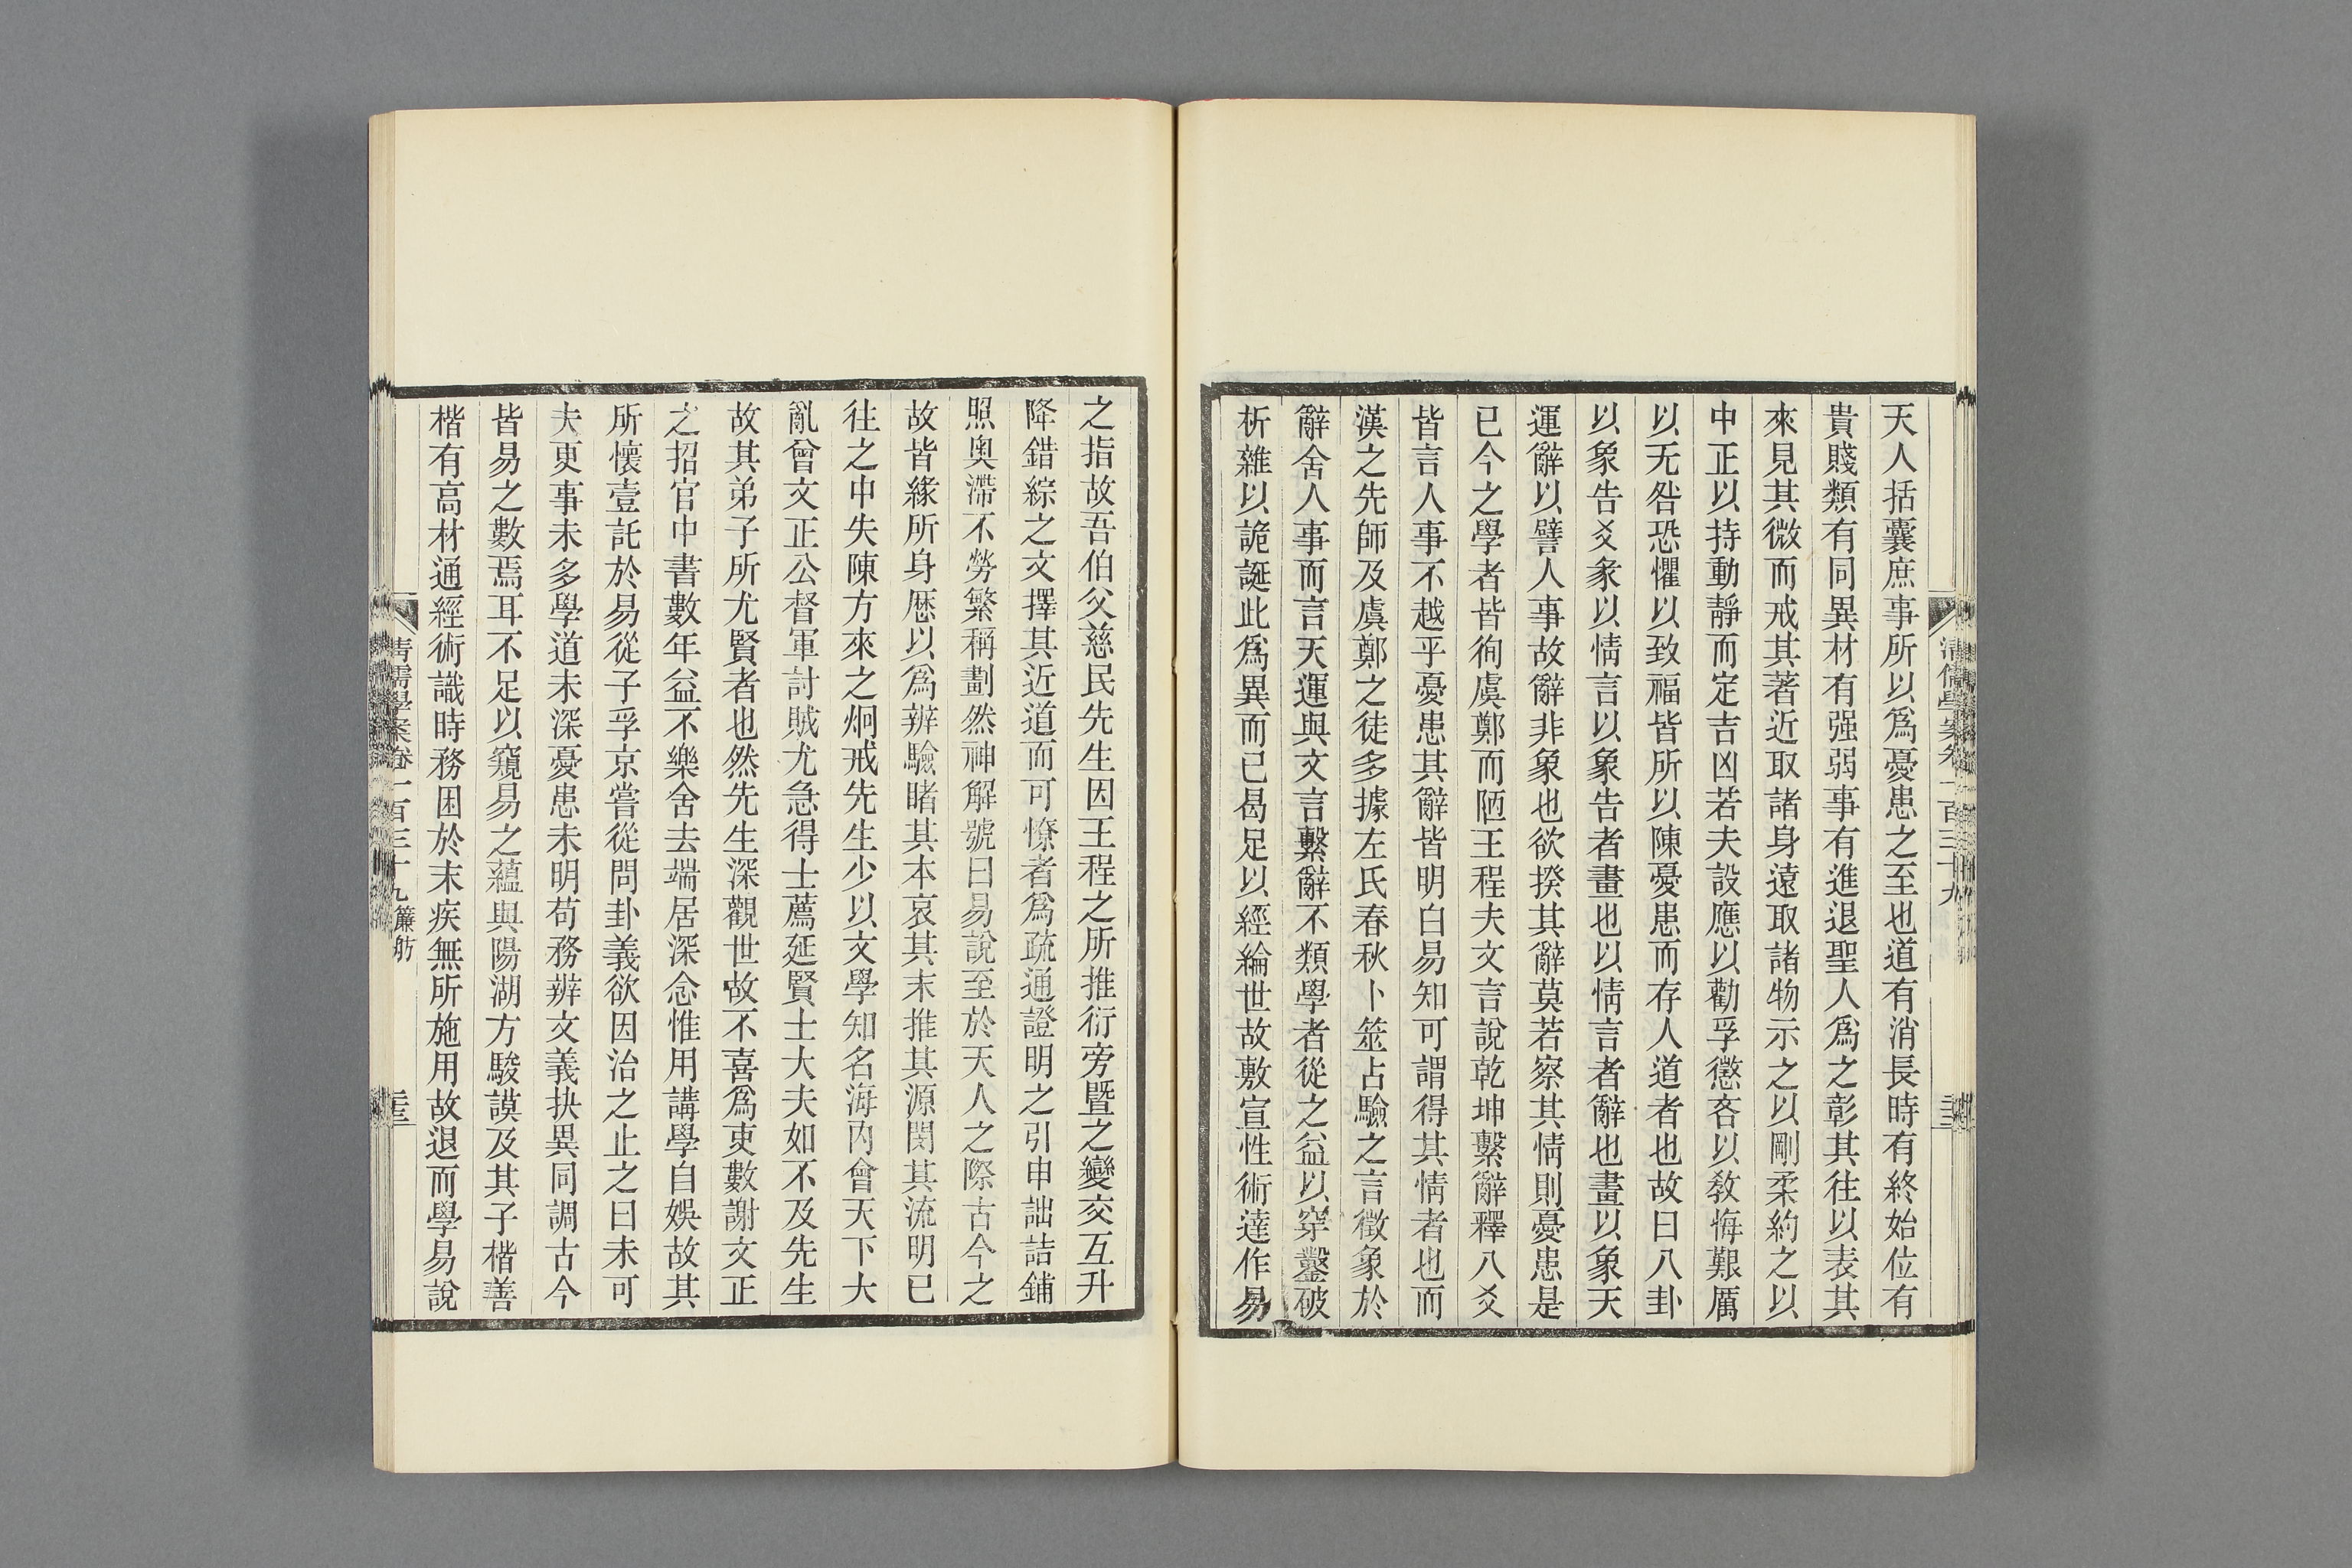 天人括囊庶事所以爲憂患之至也道有消長時有終始位有
貴賤類有同異材有强弱事有進退聖人爲之彰其往以表其
來見其微而戒其著近取諸身遠取諸物示之以剛柔約之以
中正以持動靜而定吉凶若夫設應以勸孚懲吝以敎悔艱厲
以无咎恐懼以致福皆所以陳憂患而存人道者也故曰八卦
以象告爻彖以情言以象告者畫也以情言者辭也畫以象天
運辭以譬人事故辭非象也欲揆其辭莫若察其情則憂患是
已今之學者皆徇虞鄭而陋王程夫文言說乾坤繫辭釋八爻
皆言人事不越乎憂患其辭皆明白易知可謂得其情者也而
漢之先師及虞鄭之徒多據左氏春秋卜筮占驗之言徵象於
辭舍人事而言天運與文言繫辭不類學者從之益以穿鑿破
析雜以詭誕此爲異而已曷足以經綸世故敷宣性術達作易
之指故吾伯父慈民先生因王程之所推衍旁暨之變交互升
降錯綜之文擇其近道而可憭者爲疏通證明之引申詘詰鋪
照奧滯不勞繁稱劃然神解號曰易說至於天人之際古今之
故皆緣所身歷以爲辨驗睹其本哀其末推其源閔其流明已
往之中失陳方來之炯戒先生少以文學知名海內會天下大
亂曾文正公督軍討賊尤急得士薦延賢士大夫如不及先生
故其弟子所尤賢者也然先生深觀世故不喜爲吏數謝文正
之招官中書數年益不樂舍去端居深念惟用講學自娛故其
所懷壹託於易從子孚京嘗從問卦義欲因治之止之曰未可
夫更事未多學道未深憂患未明苟務辨文義抉異同調古今
皆易之數焉耳不足以窺易之蘊與陽湖方駿謨及其子楷善
楷有高材通經術識時務困於末疾無所施用故退而學易說
清儒學案卷一百三十九簾舫